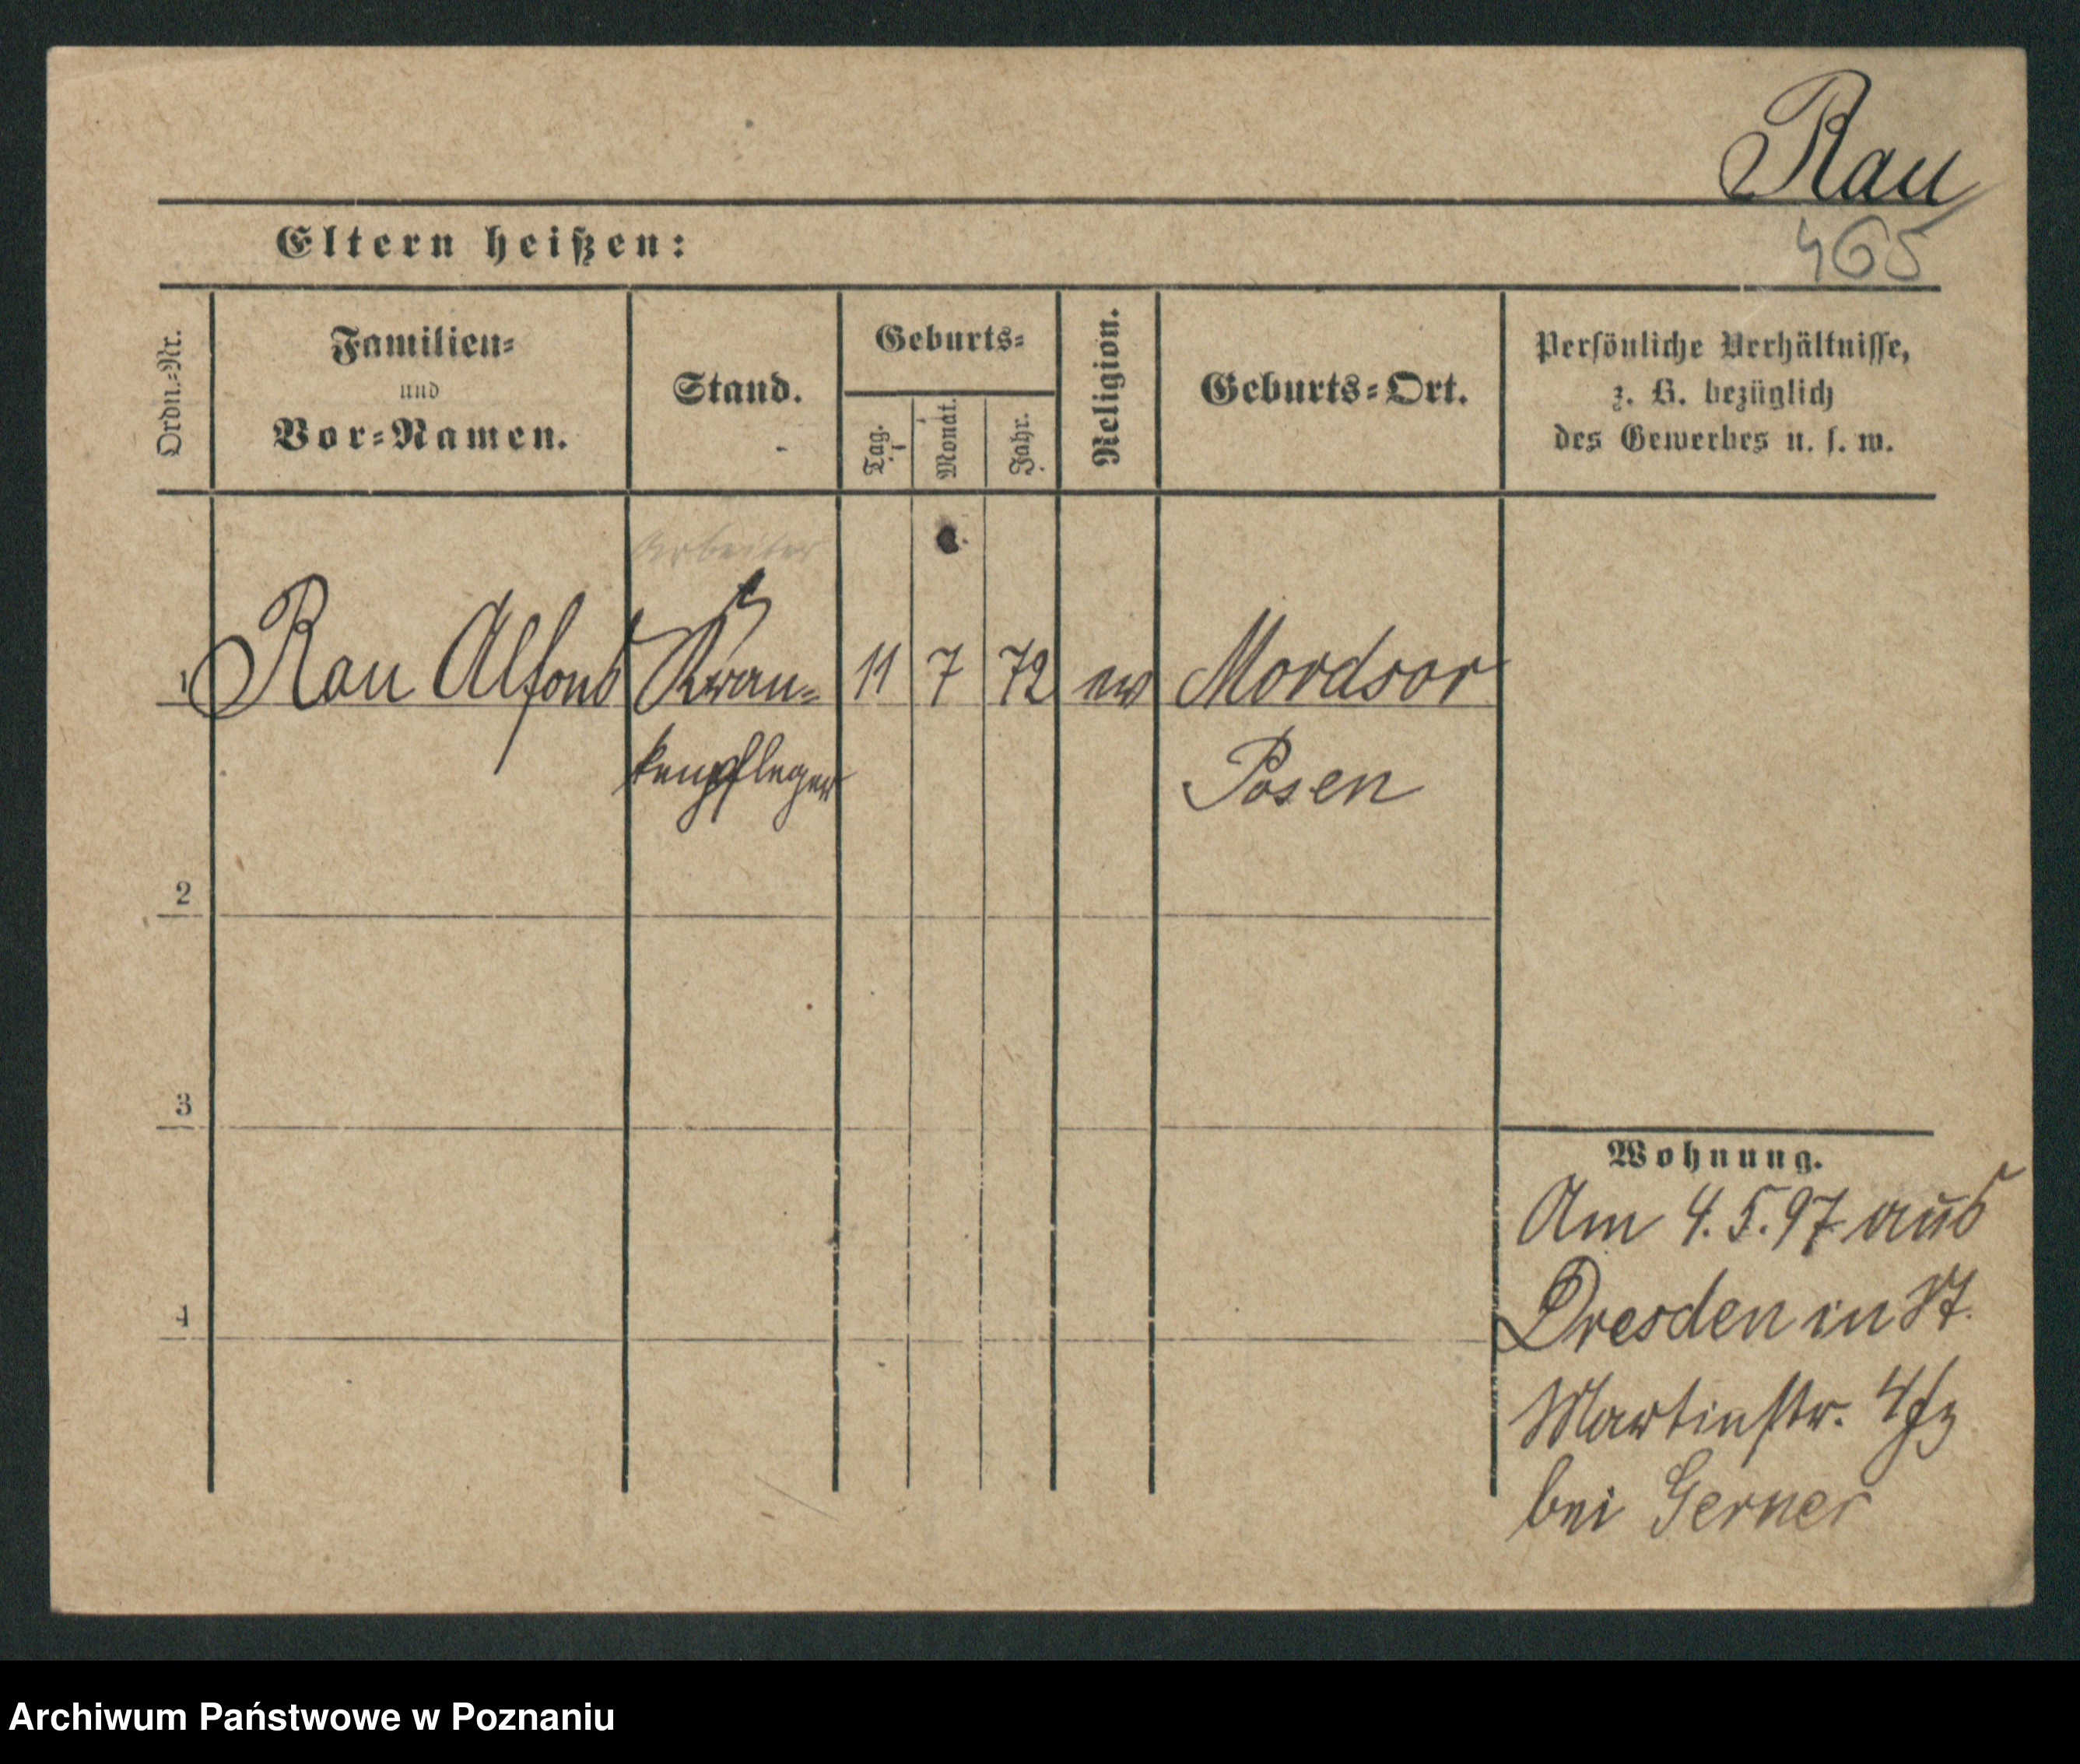 Rau
465
Eltern heißen:
Ordn.-Nr.
Familien- und Vor-Namen.
Stand.
Geburts-
Tag.
Monat.
Jahr.
Religion.
Geburts-Ort.
Persönliche Verhältnisse,
z. B. bezüglich
des Gewerbes u. s. w.
Arbeiter
1 Rau Alfons Kran- 11 7 72 ev Mordsor
kenpfleger Posen
2
3
4
Wohnung.
Am 4.5.97 aus
Dresden in St.
Martinstr. 4
bei Gerner
Archiwum Państwowe w Poznaniu